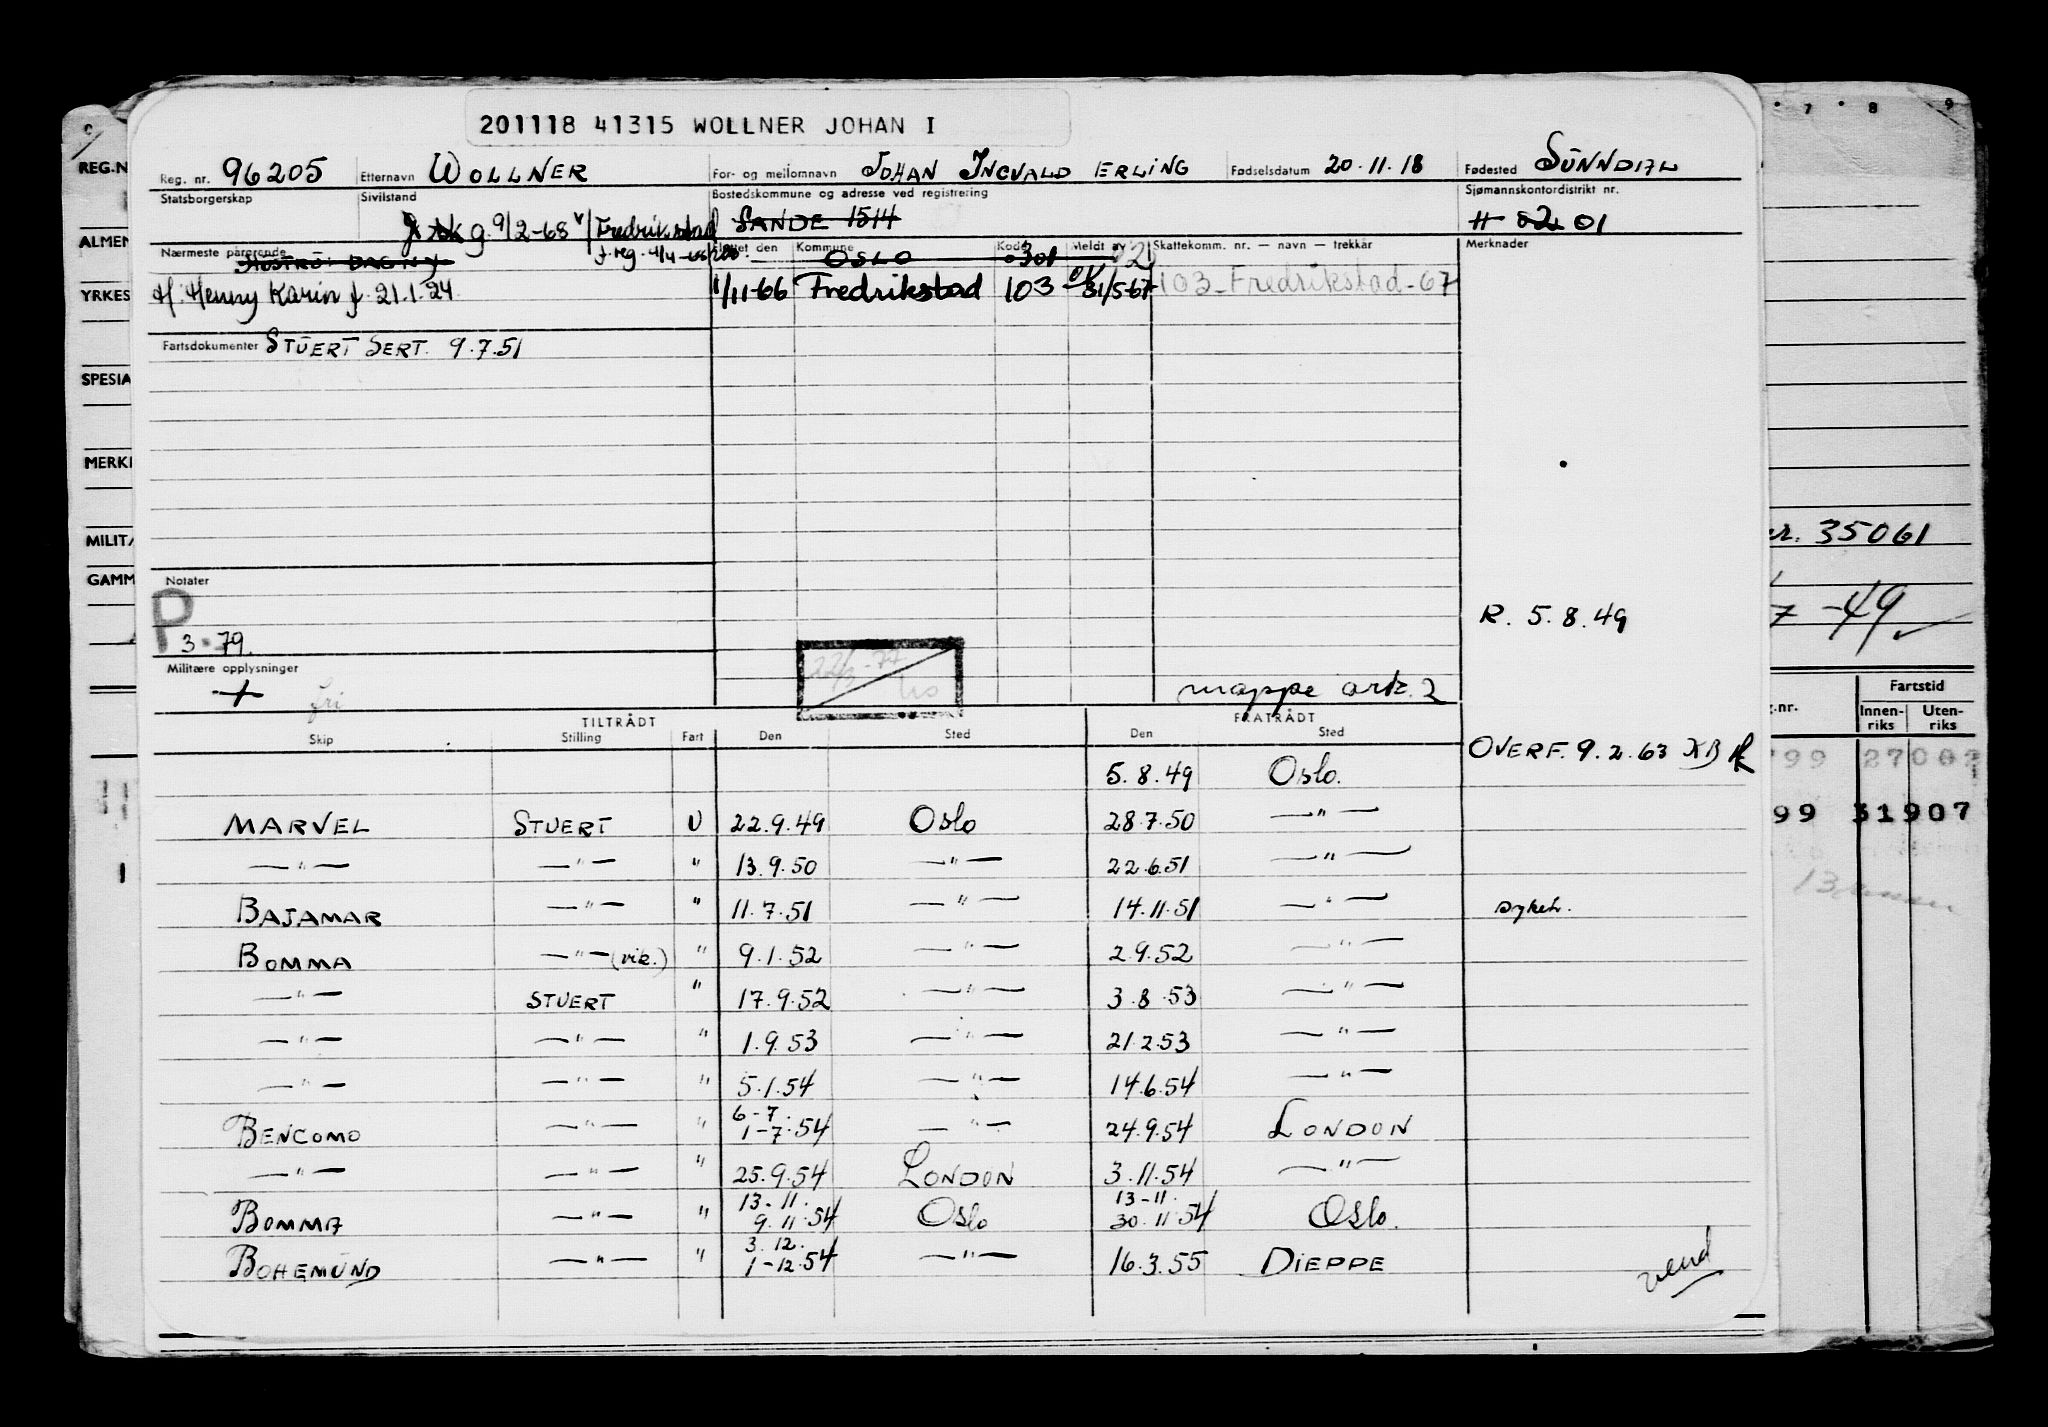 201118 41315 WOLLNER JOHAN I
Reg. nr. 96205 Etternavn WOLLNER For- og mellomnavn JOHAN INGVALD ERLING Fødselsdatum 20.11.18 Fødested SUNNDAL
Statsborgerskap Sivilstand Bostedskommune og adresse ved registrering Sjømannskontordistrikt nr.
g. 9/2-68 v/Fredrikstad SANDE 1514 02 01
Nærmeste pårørende Flyttet den Kommune Kode Meldt av Skattekomm. nr. — navn — trekkår Merknader
HUSTRU DAGNY OSLO 0301
H. Henny Karin f. 21.1.24 1/11-66 Fredrikstad 103 31/5-67 103-Fredrikstad-67
Fartsdokumenter STUERT SERT. 9.7.51
REG.N
ALMEN
YRKES
SPESIA
MERK
MILIT
GAMM
7 8 9
nr. 35061
7 -49
Notater
P 3-79.
R. 5.8.49
Militære opplysninger
fri
22/3-77
mappe ark. 2
TILTRÅDT FRATRÅDT
Skip Stilling Fart Den Sted Den Sted
OVERF. 9.2.63 KB
5.8.49 Oslo.
MARVEL STUERT U 22.9.49 Oslo 28.7.50 —"—
—"— —"— " 13.9.50 —"— 22.6.51 —"—
BAJAMAR —"— " 11.7.51 —"— 14.11.51 —"— sykeh.
BOMMA —"— (vik.) " 9.1.52 —"— 2.9.52 —"—
—"— STUERT " 17.9.52 —"— 3.8.53 —"—
—"— —"— " 1.9.53 —"— 21.2.53 —"—
—"— —"— " 5.1.54 —"— 14.6.54 —"—
6-7.
BENCOMO —"— " 1-7.54 —"— 24.9.54 LONDON
—"— —"— " 25.9.54 LONDON 3.11.54 —"—
13-11. 13-11.
BOMMA —"— " 9.11.54 Oslo 30.11.54 Oslo.
3.12.
BOHEMUND —"— " 1-12.54 —"— 16.3.55 DIEPPE
vend
Fartstid
nr. Innen-riks Uten-riks
799 27002
99 31907